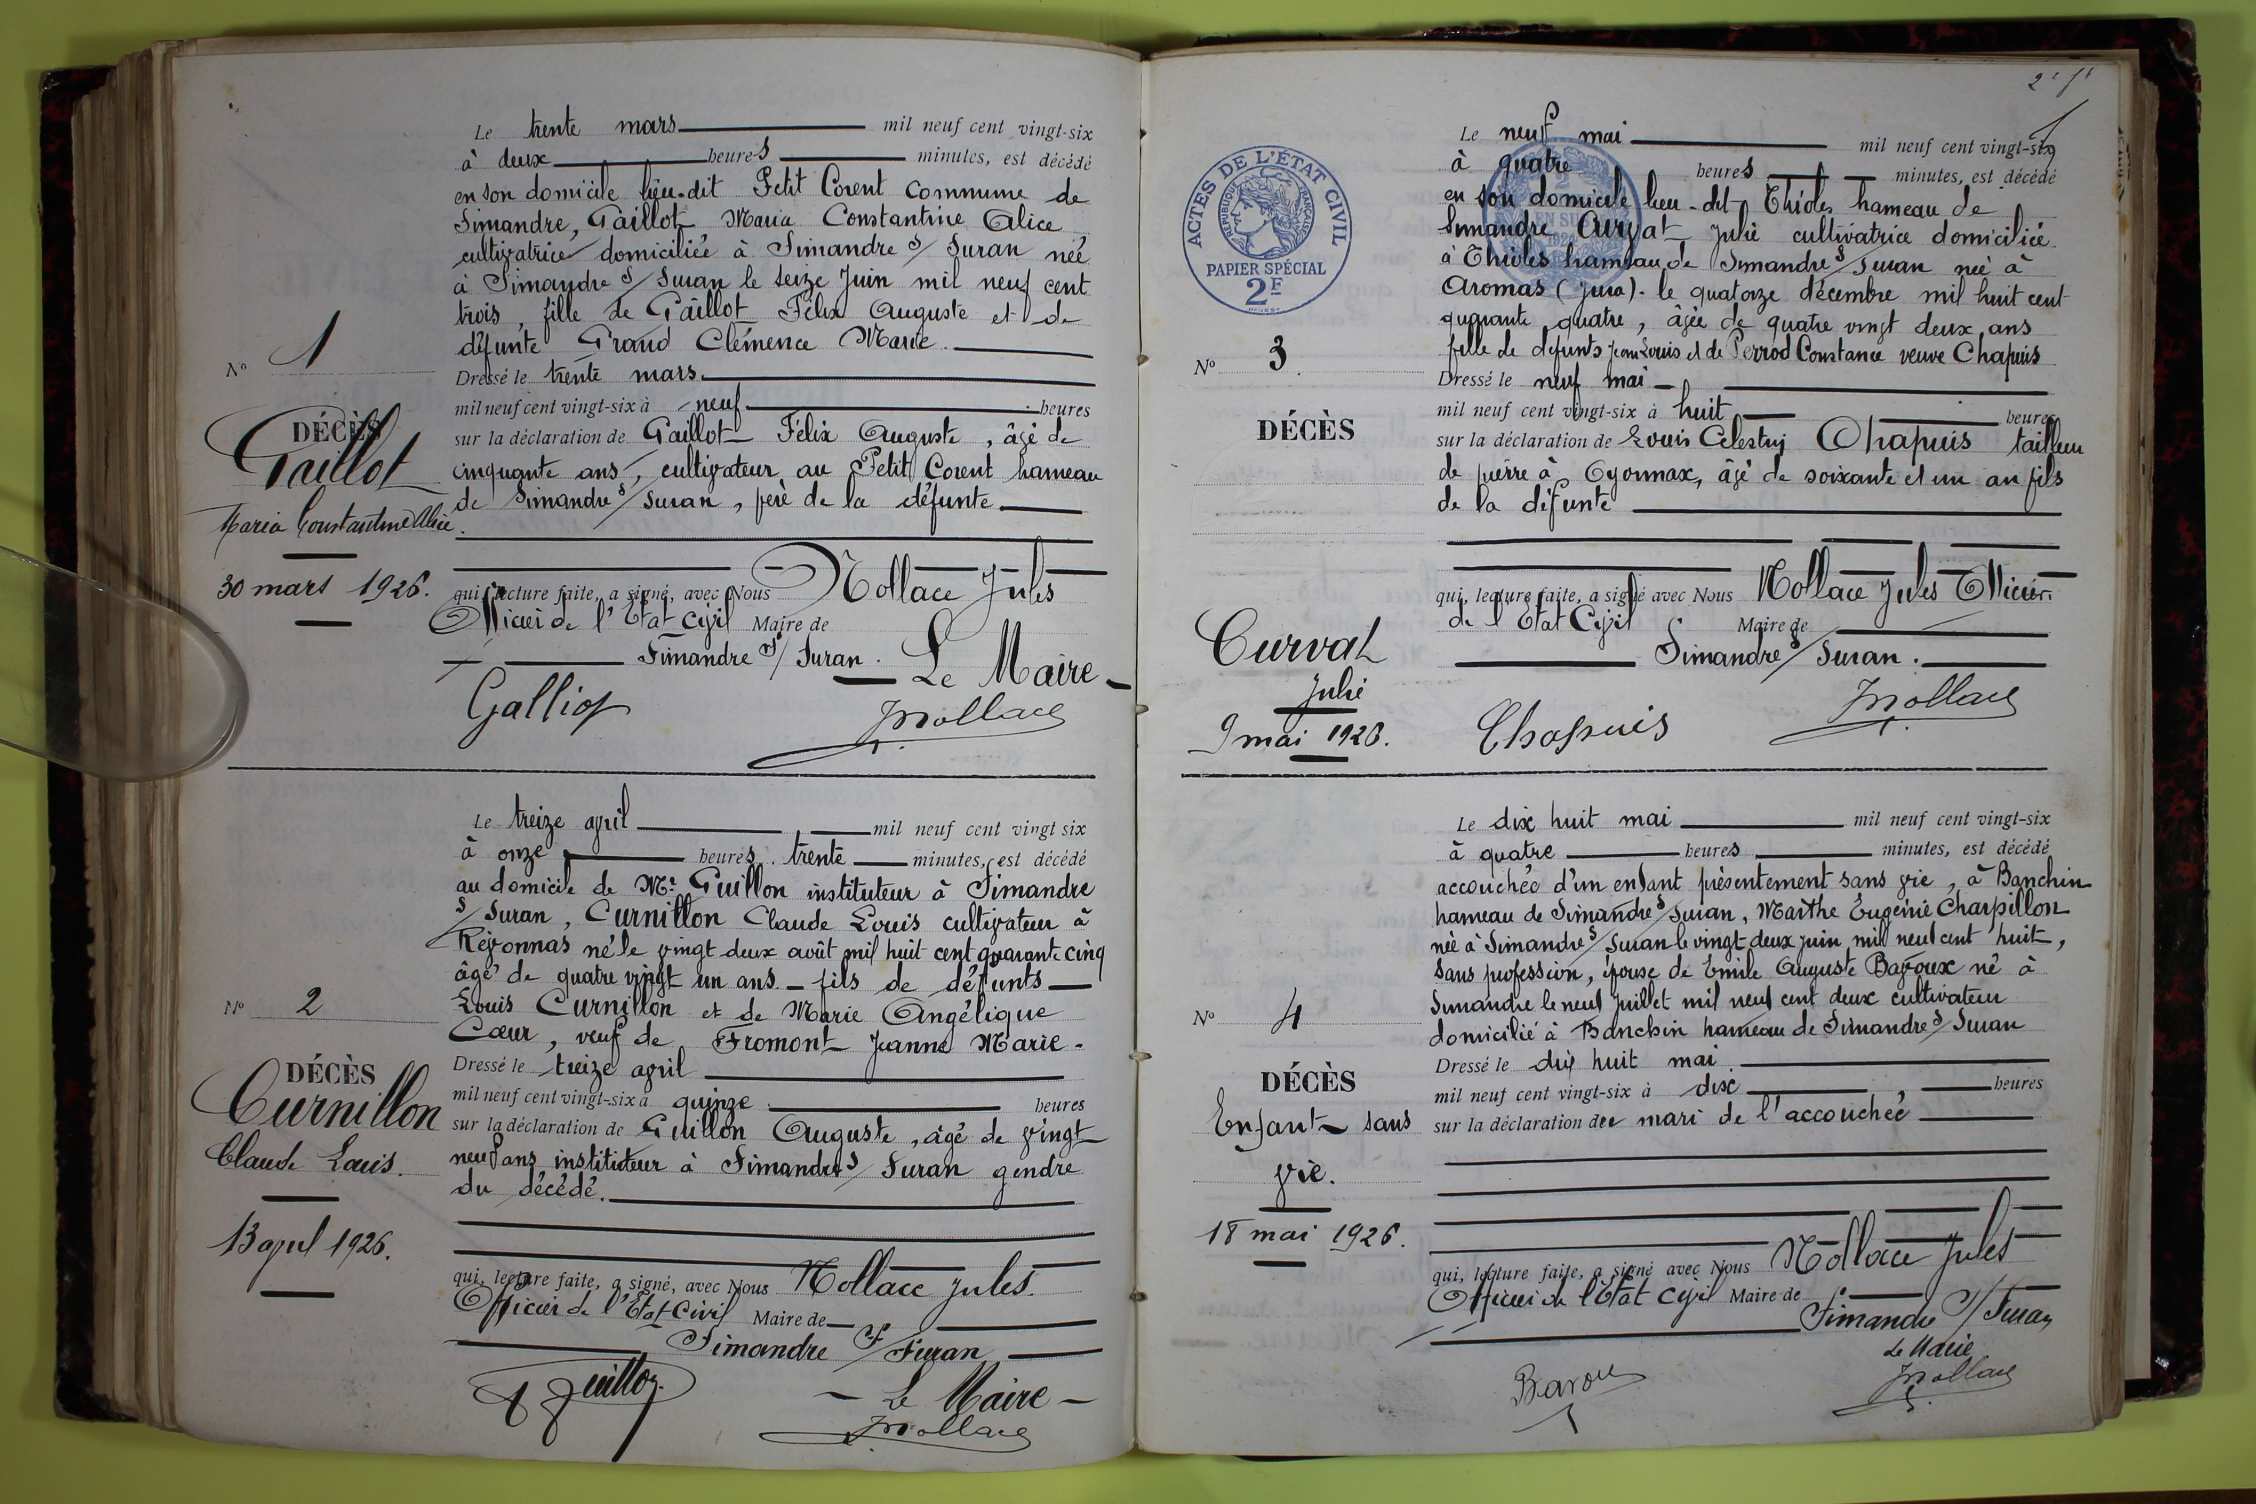 Le trente mars mil neuf cent vingt-six
à deux heures minutes, est décédé
en son domicile lieu-dit Petit Corent commune de
Simandre, Gaillot Maria Constantine Alice
cultivatrice domiciliée à Simandre s/ Suran née
à Simandre s/ Suran le seize Juin mil neuf cent
trois, fille de Gaillot Félix Auguste et de
défunte Grand Clémence Marie.
Nº 1
Dressé le trente mars
mil neuf cent vingt-six à neuf heures
DÉCÈS
Gaillot
Maria Constantine Alice
30 mars 1926.
sur la déclaration de Gaillot Félix Auguste, âgé de
cinquante ans, cultivateur au Petit Corent hameau
de Simandre s/ Suran, père de la défunte
qui, lecture faite, a signé, avec Nous Nollace Jules
Officier de l'Etat Civil Maire de
Simandre s/ Suran.
Le Maire
Galliot
JNollace
Le treize avril mil neuf cent vingt six
à onze heures trente minutes, est décédé
au domicile de Mr Guillon instituteur à Simandre
s/ Suran, Curnillon Claude Louis cultivateur à
Revonnas né le vingt deux août mil huit cent quarante cinq
âgé de quatre vingt un ans - fils de défunts
Louis Curnillon et de Marie Angélique
Cœur, veuf de Fromont Jeanne Marie -
Nº 2
DÉCÈS
Curnillon
Claude Louis.
13 avril 1926.
Dressé le treize avril
mil neuf cent vingt-six à quinze heures
sur la déclaration de Guillon Auguste, âgé de vingt
neuf ans instituteur à Simandre s/ Suran gendre
du décédé.
qui, lecture faite, a signé, avec Nous Nollace Jules.
Officier de l'Etat Civil Maire de
Simandre s/ Suran
Guillon
Le Maire
JNollace
ACTES DE L'ÉTAT CIVIL
RÉPUBLIQUE FRANÇAISE
PAPIER SPÉCIAL
2F
Le neuf mai mil neuf cent vingt-six
à quatre heures minutes, est décédé
en son domicile lieu-dit Thioles hameau de
Simandre Curvat Julie cultivatrice domiciliée
à Thioles hameau de Simandre s/ Suran née à
Aromas (Jura). le quatorze décembre mil huit cent
quarante quatre, âgée de quatre vingt deux ans
fille de défunts Jean Louis et de Perrod Constance veuve Chapuis
Nº 3
DÉCÈS
Curvat
Julie
9 mai 1926.
Dressé le neuf mai
mil neuf cent vingt-six à huit heures
sur la déclaration de Louis Célestin Chapuis tailleur
de pierre à Oyonnax, âgé de soixante et un an fils
de la défunte
qui, lecture faite, a signé avec Nous Nollace Jules Officier
de l'Etat Civil Maire de
Simandre s/ Suran.
Chapuis
JNollace
Le dix huit mai mil neuf cent vingt-six
à quatre heures minutes, est décédé
accouchée d'un enfant présentement sans vie, à Banchin
hameau de Simandre s/ Suran, Marthe Eugénie Charpillon
née à Simandre s/ Suran le vingt deux juin mil neuf cent huit,
sans profession, épouse de Emile Auguste Bavoux né à
Simandre le neuf juillet mil neuf cent deux cultivateur
domicilié à Banchin hameau de Simandre s/ Suran
Nº 4
DÉCÈS
Enfant sans
vie.
18 mai 1926.
Dressé le dix huit mai
mil neuf cent vingt-six à dix heures
sur la déclaration du mari de l'accouchée
qui, lecture faite, a signé avec Nous Nollace Jules
Officier de l'Etat Civil Maire de
Simandre s/ Suran
Le Maire
Bavoux
JNollace